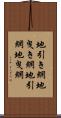 地引き網地
曳き網地引
網地曳網